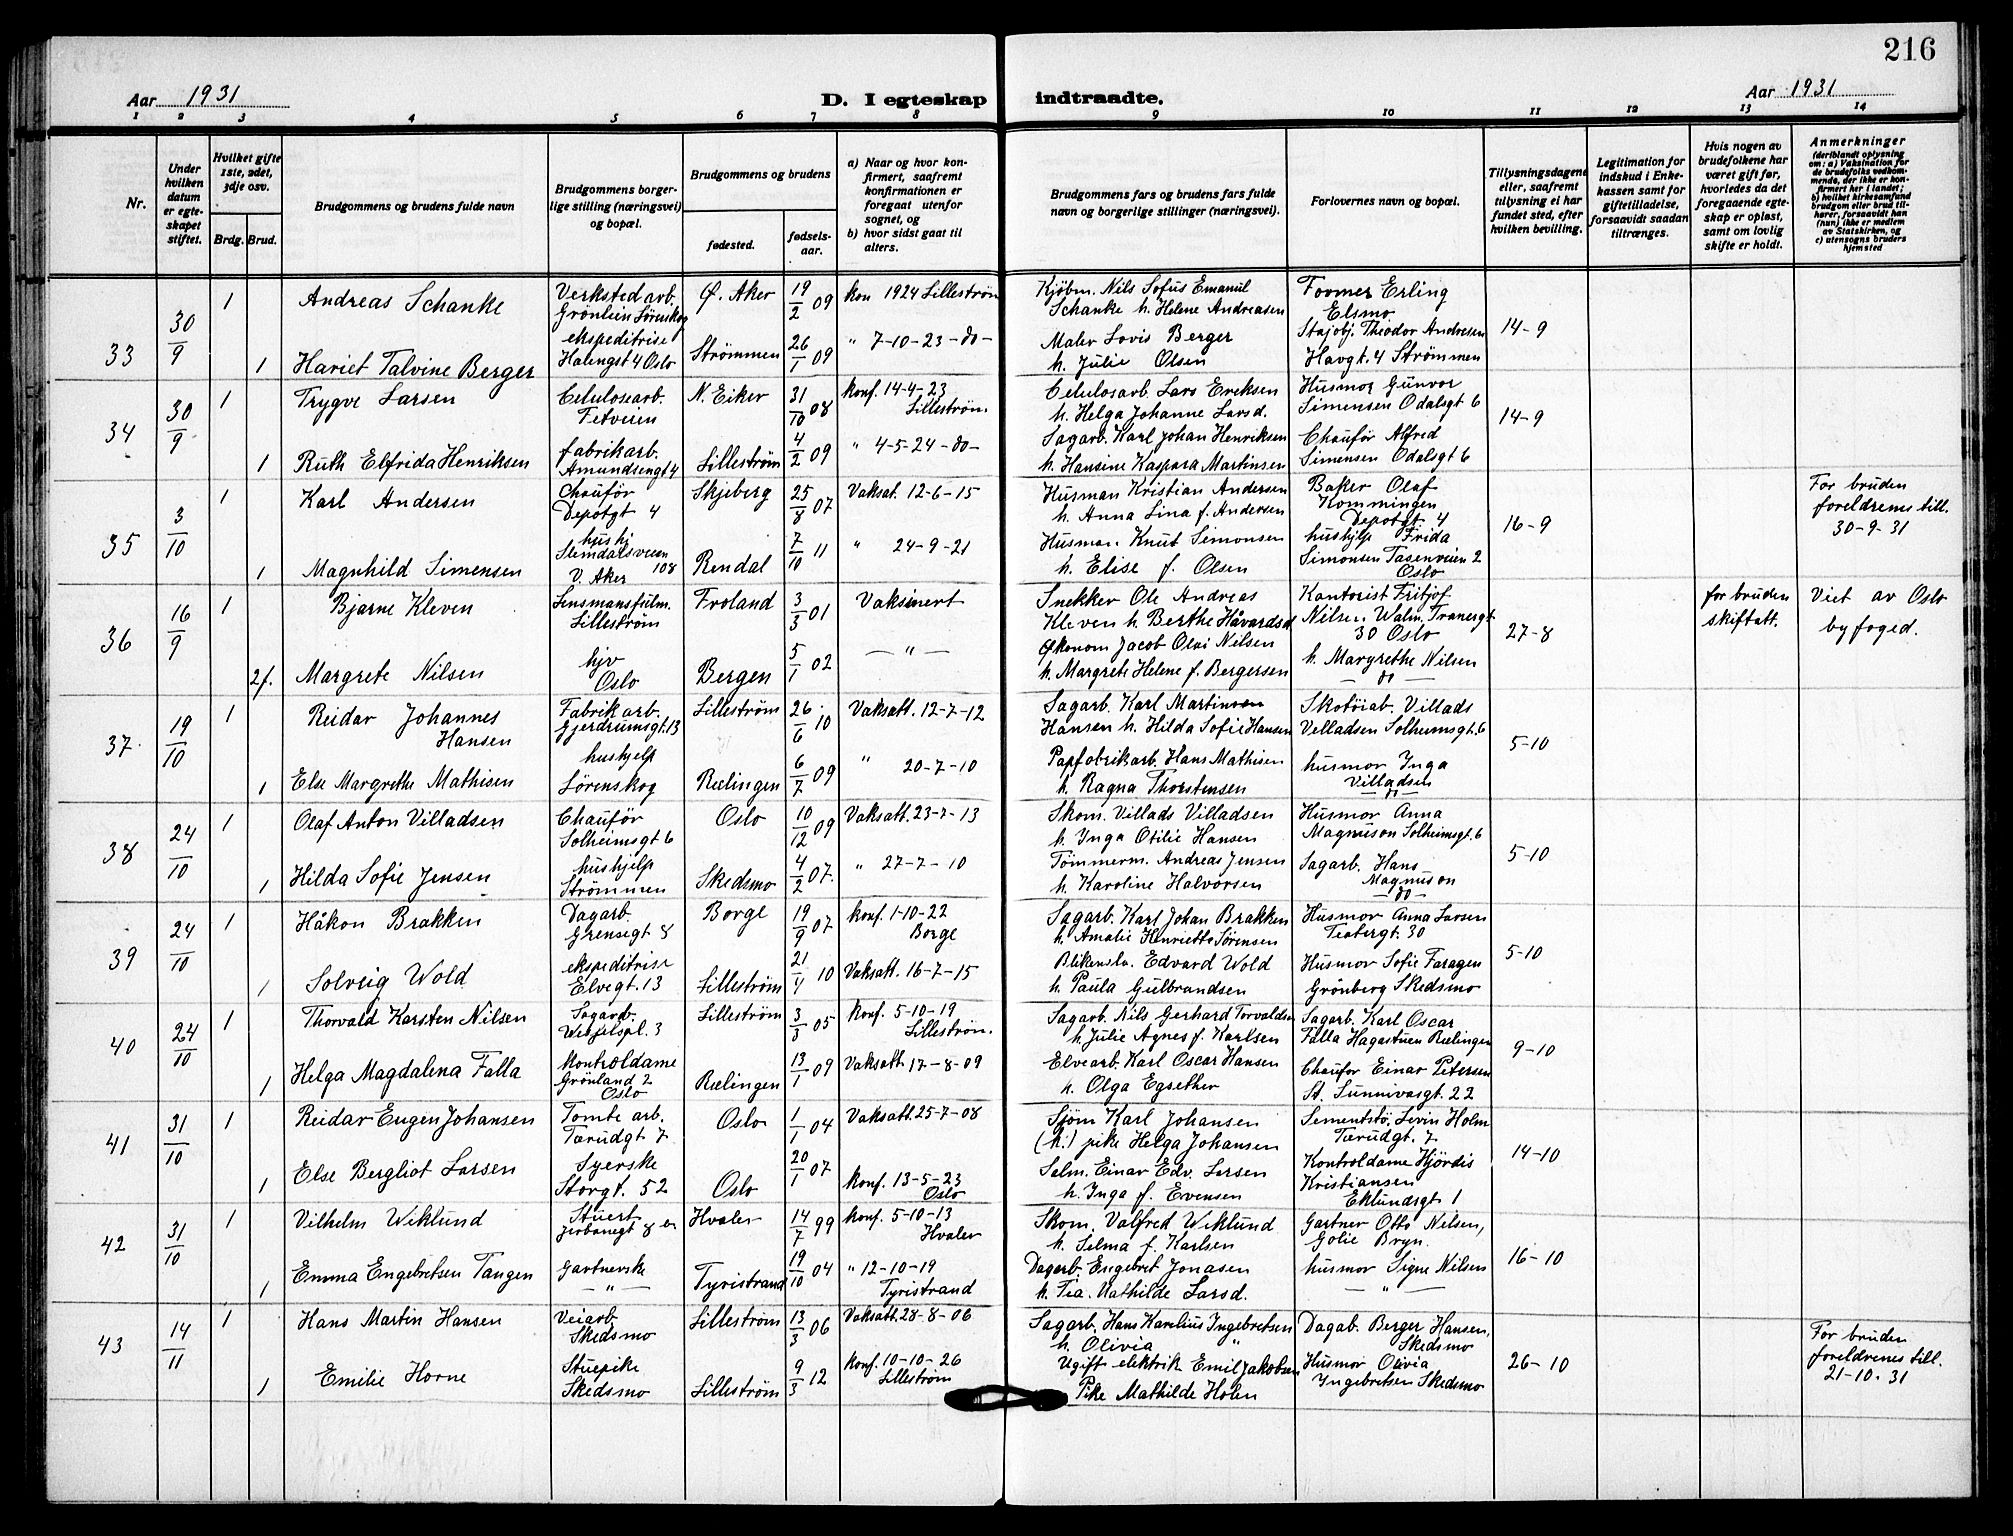 216
Aar 1931
D. I egteskap indtraadte.
Aar 1931
1 2 3 4 5 6 7 8 9 10 11 12 13 14
Nr.
Under hvilken datum er egteskapet stiftet.
Hvilket gifte 1ste, 2det, 3dje osv.
Brdg. Brud.
Brudgommens og brudens fulde navn
Brudgommens borgerlige stilling (næringsvei) og bopæl.
Brudgommens og brudens
fødested.
fødselsaar.
a) Naar og hvor konfirmert, saafremt konfirmationen er foregaat utenfor sognet, og
b) hvor sidst gaat til alters.
Brudgommens fars og brudens fars fulde navn og borgerlige stillinger (næringsvei).
Forlovernes navn og bopæl.
Tillysningsdagene eller, saafremt tillysning ei har fundet sted, efter hvilken bevilling.
Legitimation for indskud i Enkekassen samt for giftetilladelse, forsaavidt saadan tiltrænges.
Hvis nogen av brudefolkene har været gift før, hvorledes da det foregaaende egteskap er opløst, samt om lovlig skifte er holdt.
Anmerkninger
(deriblandt oplysning om: a) Vaksination for de brudefolks vedkommende, der ikke er konfirmert her i landet; b) hvilket kirkesamfund brudgom eller brud tilhører, forsaavidt han (hun) ikke er medlem av Statskirken, og c) utensogns bruders hjemsted
33 30/9 1 Andreas Schanke Verksted arb. Grönlien Lørenskog Ø. Aker 19/2 09 kon 1924 Lilleström Kjøbm. Nils Sofus Emanuel Schanke h. Helene Andreasen Former Erling Elsmo 14-9
1 Hariet Talvine Berger ekspeditrise Halengst 4 Oslo Strömmen 26/1 09 " 7-10-23 -do- Maler Lovis Berger h. Julie Olsen Theodor Andresen Havgt. 4 Strömmen
34 30/9 1 Trygve Larsen Celulosearb. Tetveien N. Eiker 31/10 08 konf. 14-4-23 Lilleström. Celulosarb. Lars Ereksen h. Helga Johanne Larsd. Husmor Gunvor Simensen Odalsgt 6 14-9
1 Ruth Elfrida Henriksen fabrikarb. Amundsengt 4 Lilleström 4/2 09 " 4-5-24 -do- Sagarb. Karl Johan Henriksen h. Hansine Kaspara Martinsen Chauför Alfred Simensen Odalsgt 6
35 3/10 1 Karl Andersen Chauför Depotgt 4 Skjeberg 25/8 07 Vaksat. 12-6-15 Husman Kristian Andersen h. Anna Lina f. Andersen Baker Olaf Kommingen Depotgt. 4 16-9 For bruden foreldrenes till. 30-9-31
1 Magnhild Simensen hushj Slemdalsveien 108 V. Aker Rendal 7/10 11 " 24-9-21 Husman Knut Simonsen h. Elise f. Olsen hushjelp Frida Simonsen Tasenveien 2 Oslo
36 16/9 1 Bjarne Kleven Lensmansfulm. Lilleström Froland 3/3 01 Vaksinert Snekker Ole Andreas Kleven h. Berthe Håvardsd Kontorist Fritjof Nilsen Walm. Tranesgt 30 Oslo 27-8 for bruden skiftatt. Viet av Oslo byfoged.
2f. Margrete Nilsen hjv Oslo Bergen 5/1 02 — " — Økonom Jacob Olai Nilsen h. Margrete Helene f. Bergersen h. Margrethe Nilsen — do —
37 19/10 1 Reidar Johannes Hansen Fabrikarb. Gjerdrumsgt. 13 Lilleström 26/6 10 Vaksatt. 12-7-12 Sagarb. Karl Martinsen Hansen h. Hilda Sofie Hansen Skotöiab. Villads Velladsen Solheimsgt. 6 5-10
1 Else Margrethe Mathisen hushjelp Lørenskog Rælingen 6/7 09 " 20-7-10 Papfabrikarb. Hans Mathisen h. Ragna Thorstensen husmor Inga Villadsen — do —
38 24/10 1 Olaf Anton Villadsen Chauför Solheimsgt 6 Oslo 10/12 09 Vaksatt. 23-7-13 Skom. Villads Villadsen h. Inga Otilie Hansen Husmor Anna Magnuson Solheimsgt. 6 5-10
1 Hilda Sofie Jensen hushjelp Strömmen Skedsmo 4/2 07. " 27-7-10 Tömmerm. Andreas Jensen h. Karoline Halvorsen Sagarb. Hans Magnuson — do —
39 24/10 1 Håkon Brakken Dagarb. Grensegt 8 Borge 19/9 07 konf. 1-10-22 Borge Sagarb. Karl Johan Brakken h. Amalie Henriette Sørensen Husmor Anna Larsen Teatergt. 30 5-10
1 Solveig Wold ekspeditrise Elvegt. 13 Lilleström 21/4 10 Vaksatt. 16-7-15 Blikenslr. Edvard Wold h. Paula Gulbrandsen Husmor Sofie Faragen Grönberg Skedsmo
40 24/10 1 Thorvald Karsten Nilsen Sagarb. 3 Lilleström 3/3 05 konf. 5-10-19 Lilleström. Sagarb. Nils Gerhard Torvaldsen h. Julie Agnes f. Karlsen Sagarb. Karl Oscar Falla Hagastuen Rælingen 9-10
1 Helga Magdalena Falla Kontroldame Grönland 2 Oslo Rælingen 13/1 09 Vaksatt. 17-8-09 Elvearb. Karl Oscar Hansen h. Olga Egsether Chaufør Einar Petersen St. Sunnivasgt. 22
41 31/10 1 Reidar Eugen Johansen Tomte arb. Tærudgt. 7 Oslo 1/1 04 Vaksatt. 25-7-08 Sjöm Karl Johansen (h.) pike Helga Johansen Sementstö. Levin Holm Tærudgt. 7 14-10
1 Else Bergliot Larsen Syerske Storgt. 52 Oslo 20/1 07 konf. 13-5-23 Oslo Salm. Einar Edv. Larsen h. Inga f. Evensen Kontroldame Hjördis Kristiansen Eklundsgt 1
42 31/10 1 Vilhelm Wiklund Stuert Jerbanegt 8 Hvaler 14/7 99 konf. 5-10-13 Hvaler Skom. Valfred Wiklund h. Selma f. Karlsen Gartner Otto Nilsen, Golie Bryn. 16-10
1 Emma Engebretsen Tangen Gartnerske — " — Tyristrand 19/10 04 " 12-10-19 Tyristrand Dagarb. Engebret Jonasen h. Tea Mathilde Larsd. husmor Signe Nilsen — " —
43 14/11 1 Hans Martin Hansen Veiarb. Skedsmo Lilleström 13/3 06 Vaksatt. 28-8-06 Sagarb. Hans Karelius Ingebretsen h. Olivia " Dagab. Berger Hansen, Skedsmo 26-10 For bruden foreldrenes till. 21-10-31
1 Emilie Horne Stuepike Skedsmo Lilleström 9/3 12 konf. 10-10-26 Lilleström Ugift elektrik Emil Jakobsen Pike Mathilde Holen Husmor Olivia Ingebretsen Skedsmo